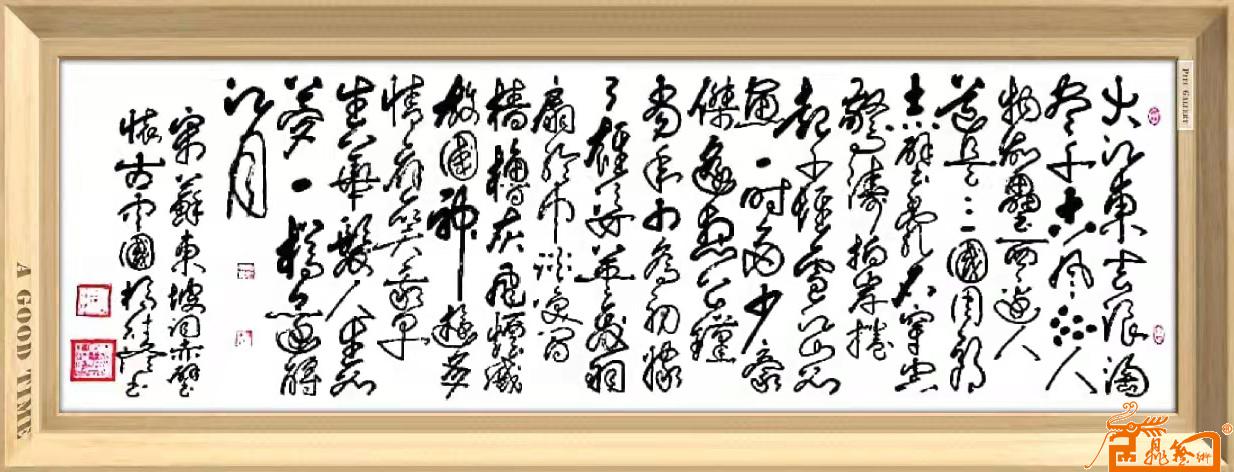 大江東去浪淘
盡千古風流人
物故壘西邊人
道是三國周郎
赤壁亂石穿空
驚濤拍岸捲
起千堆雪江山如
畫一時多少豪
傑遙想公瑾
當年小喬初嫁
了雄姿英發羽
扇綸巾談笑間
檣櫓灰飛煙滅
故國神遊多
情應笑我早
生華髮人生如
夢一樽還酹
江月
宋蘇東坡詞赤壁
懷古中國楊書
A GOOD TIME